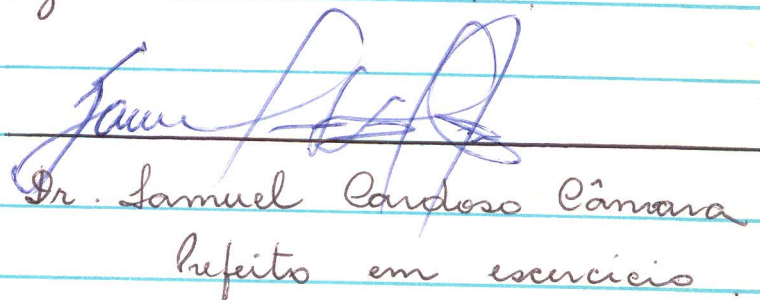 Dr. Samuel Cardoso Câmara
Prefeito em escercício.